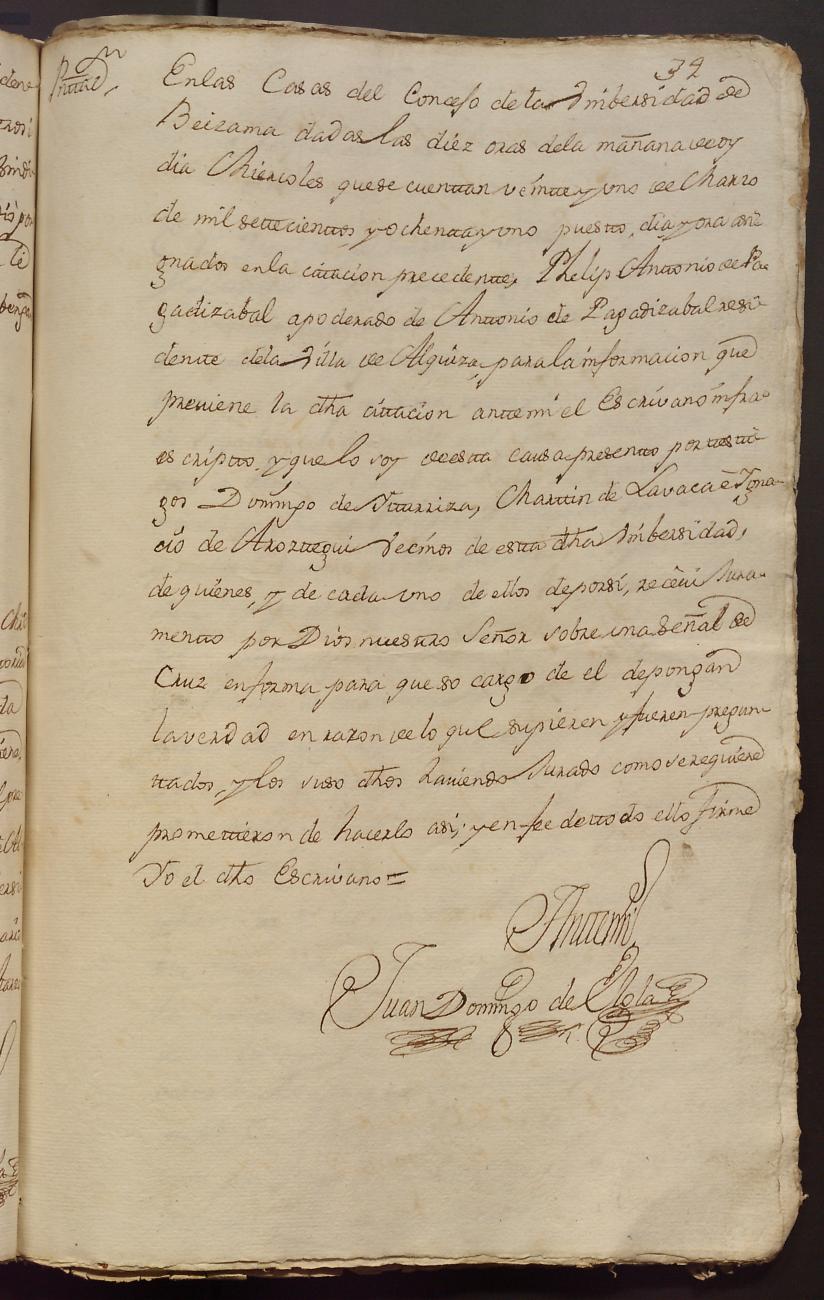 34
Pnttaon
En las Casas del Concejo de la Vnibersidad de
Beizama dadas las diez oras dela mañana de oy
dia Miercoles que se cuenttan veintte y uno de Marzo
de mil settecienttos y ochenta y uno puestto, dia y ora asi-
gnados en la citacion precedentte, Phelip Anttonio de Pa-
gadizabal apoderado de Anttonio de Pagadizabal resi-
dentte dela Villa de Alquiza, para la informacion que
preuiene la dha cittacion antte mi el Escrivano infra-
escriptto, y que lo soy de estta causa presentto por testti-
gos Domingo de Ytturriza, Marttin de Lavaca è Igna-
cio de Arozttegui vecinos de estta dha Vnibersidad,
de quienes, y de cada uno de ellos de por si, receui Jura-
mentto por Dios nuesttro Señor sobre una señal de
Cruz en forma para que so cargo de el depongan
la verdad en razon de lo que supieren y fueren pregun-
ttados, y los suso dhos hauiendo Jurado como se requiere
promettieron de hacerlo asi; y en fee de ttodo ello firme
Yo el dho Escrivano =
Antte mi
Juan Domingo de Elola